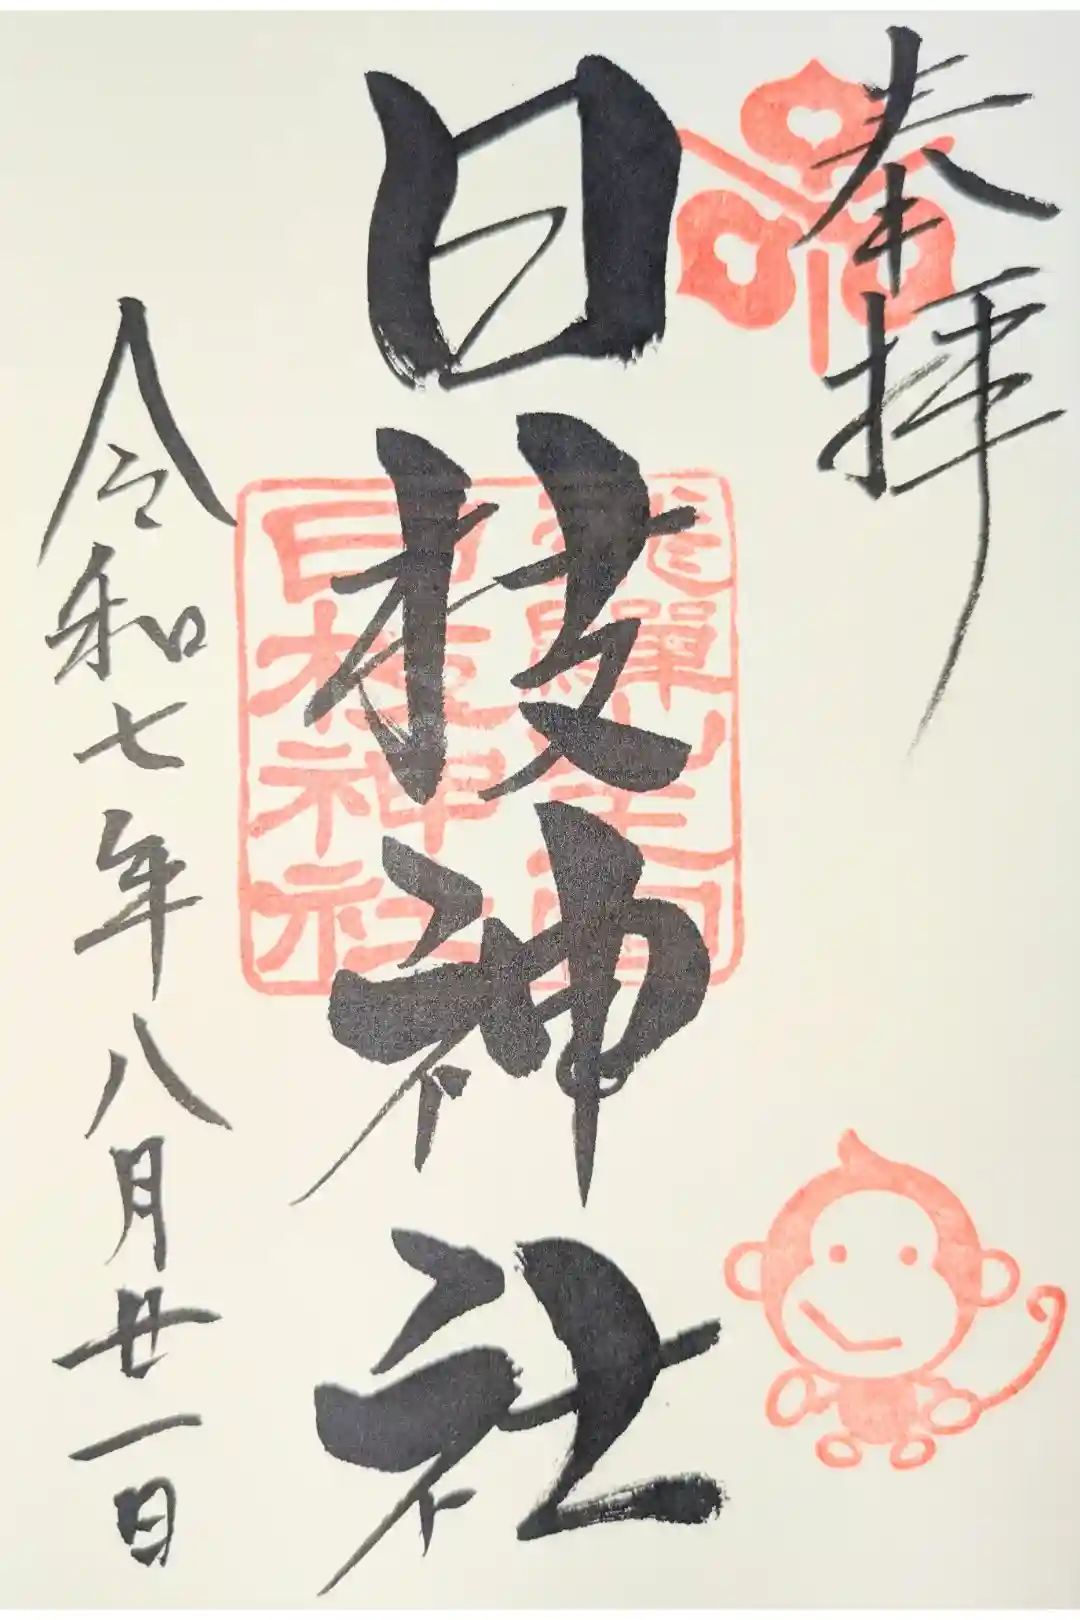 奉拝
日枝神社
飛驒山王宮
日枝神社
令和七年八月廿一日